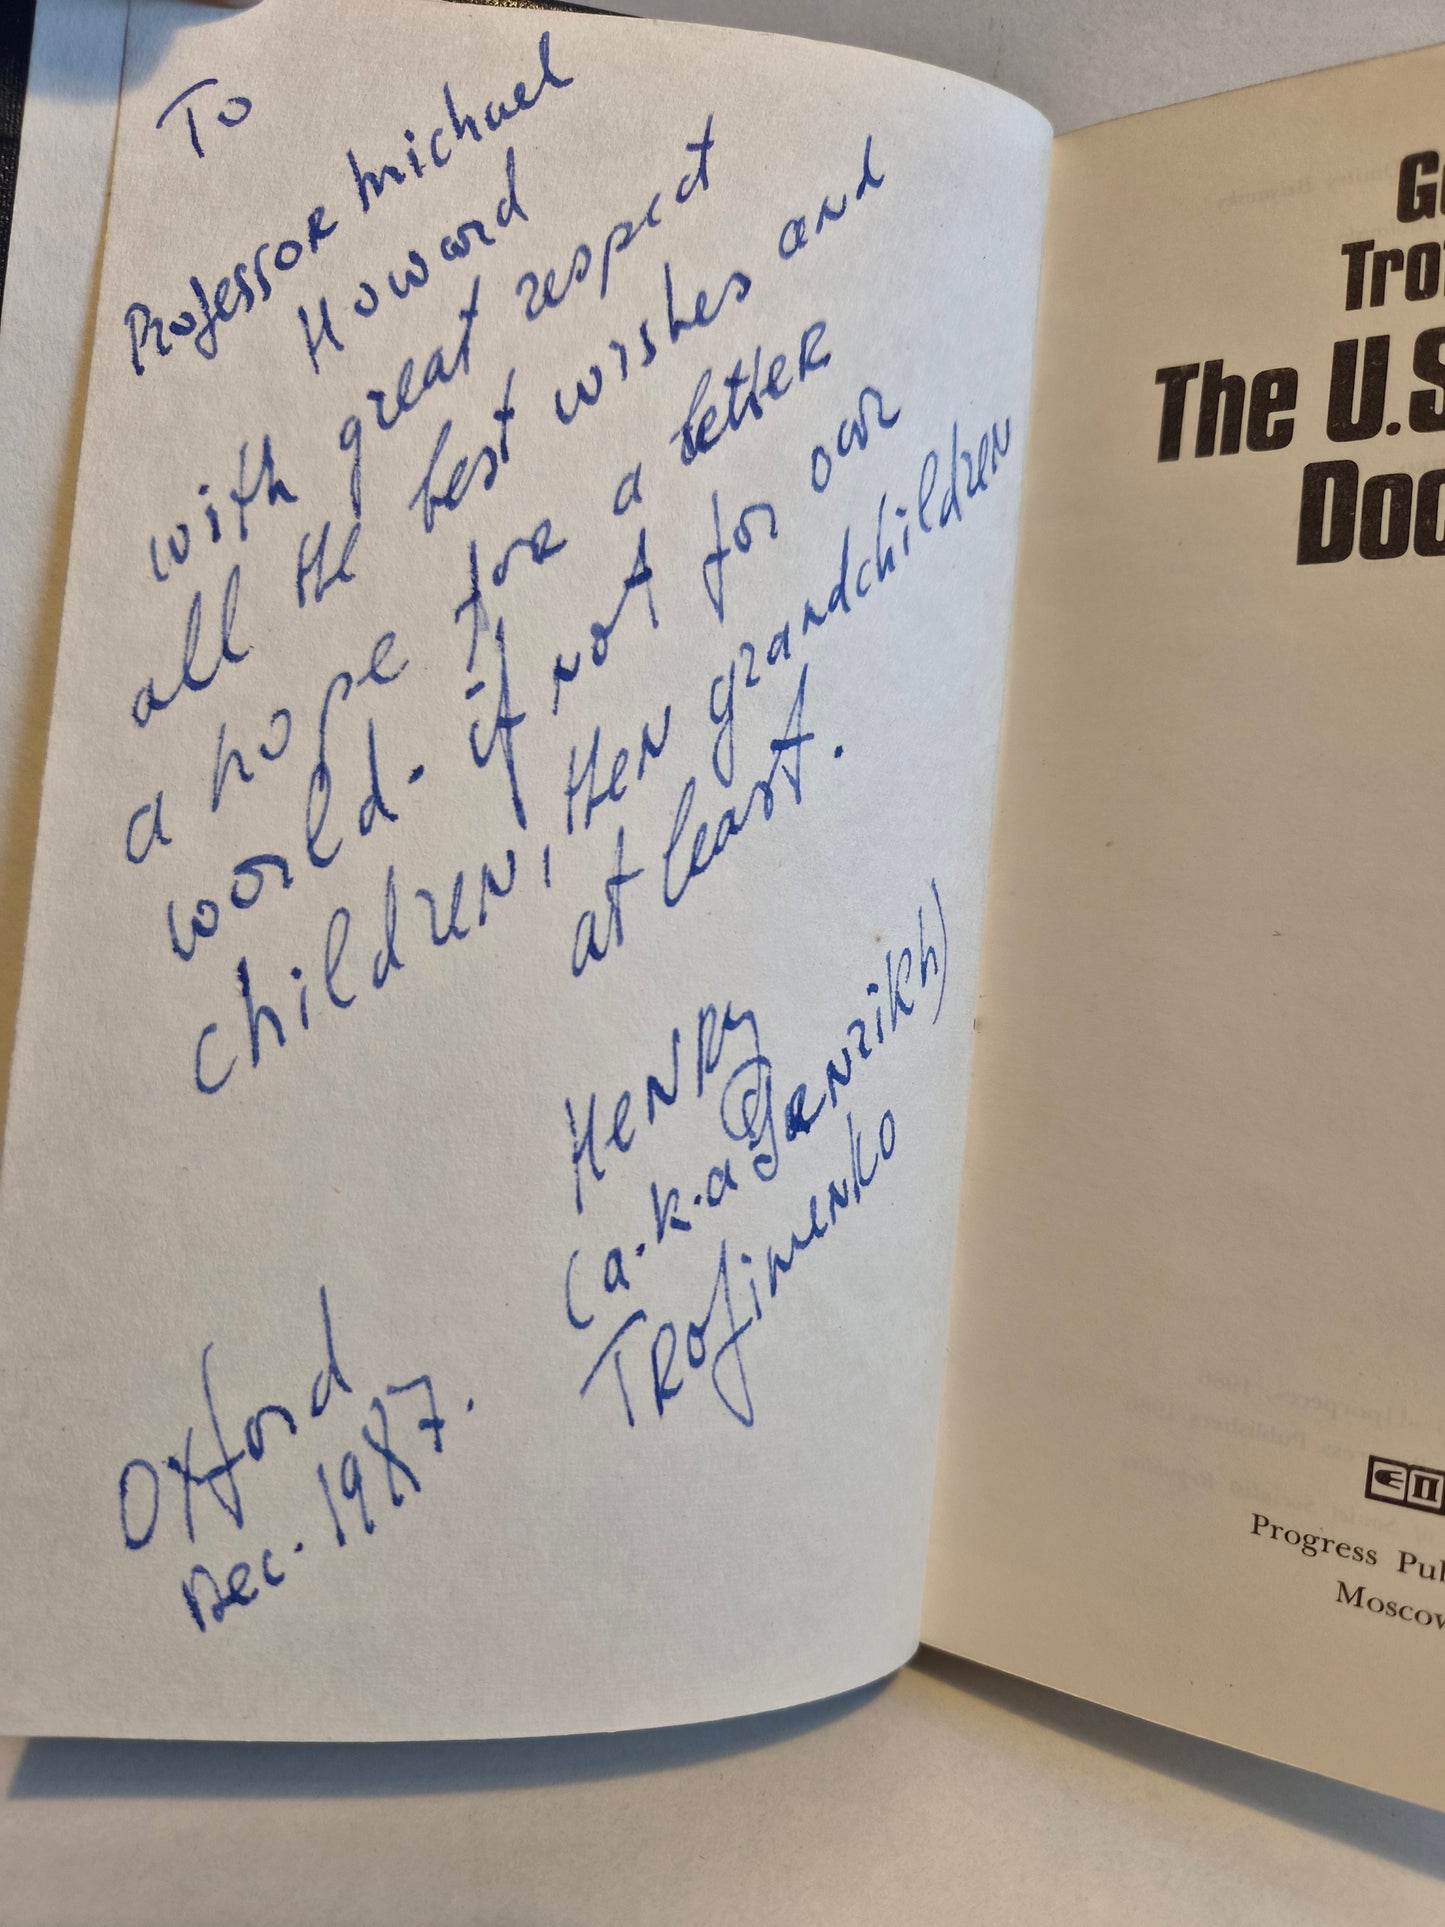 To
Professor Michael
Howard
with great respect
all the best wishes and
a hope for a better
world - if not for our
children, then grandchildren
at least.
Henry
(a.k.a Genrikh)
Trofimenko
Oxford
Dec. 1987.
The U.S
Progress Pub
Moscow